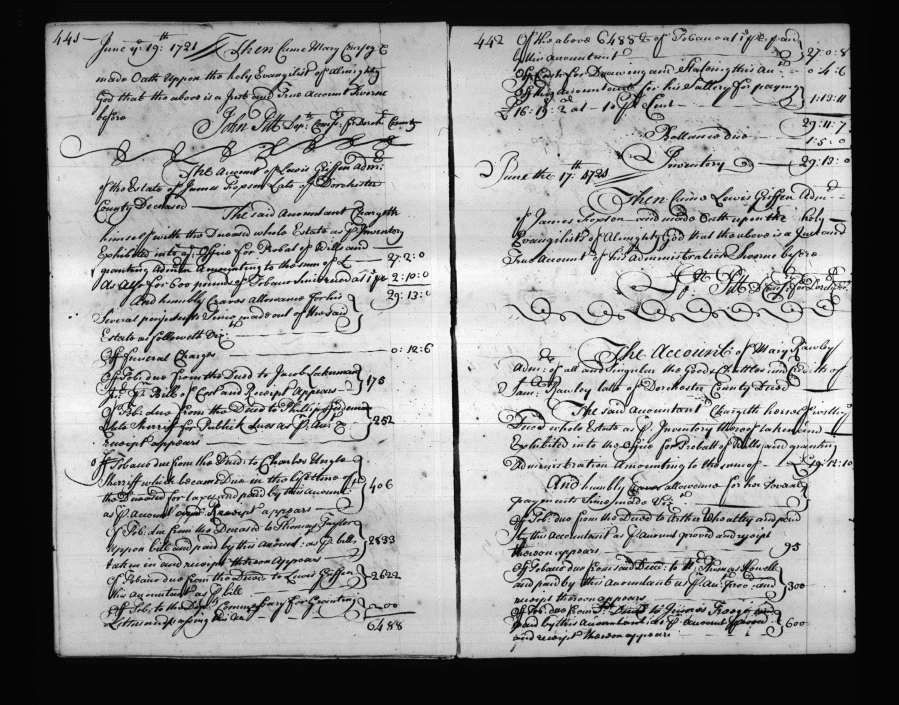 441 —
June ye 19th 1721 Then Came Mary
made Oath Upon the holy Evangelist of Almighty
God that the above is a Just and True Account Sworne
before
John Pitt Depty Comisr for Dorchr County
The Account of Lewis Griffen Admr
of the Estate of James Late of Dorchester
County Deceased — The said Accountant Chargeth
himself with the Deceased whole Estate as Pr Inventory
Exhibited into ye Office for Probat of Wills and
granting Admon Amounting to the sum of £ — 27:2:0
As Also for 600 pounds of Tobacco at 1d pr 2:10:0
29:13:0
And humbly Craves allowance for his
Several payments Since made out of the said
Estate as followeth Vizt
Of Funeral Charges — 0:12:6
Of Tob: due from the Decd to Jacob Lookerman
Bill of and Receipt Appears — 175
Of Tob: due from the Decd to Phillip
Late Sherriff for Publick Dues as Pr Acct &
receipt appears — 252
Of Tobacco due from the Decd: to Charles Ungle
Sherriff which became due in the life time of
the Deceased for Taxes and paid by this Accountt
as Pr Account and Receipt appears — 406
Of Tob: due from the Deceased to Thomas Taylor
uppon bill and paid by this Accountt: as Pr bill
taken in and receipt thereon Appears 2833
Of Tobacco due from the Decd to Lewis Griffen
this Accountant as Pr bill — 2622
Of Tob: to the Depty Commissary for Granting
Letters and passing this Acct 200
6488
442 Of the above 6488 lb of Tobacco at 1d Pr lb paid
by this Accountant — 27:0:8
Of Cash for Drawing and Stateing this Acct — 0:4:6
Of this Accountant for his Sallery for paying
£16:19:2 at 10 Pr Cent — 1:13:11
29:11:7
Ballance due — 1:5:0
Inventory — 29:13:0
June the 17th 1721
Then Came Lewis Griffen Admr
of James and made Oath upon the holy
Evangelists of Almighty God that the above is a Just and
True Account of his Administration Sworne before
Jn Pitt Depty Comisr for Dorchr Cty
The Account of Mary Rawley
Admx of all and Singular the Goods Chattles and Credits of
Jams Rawley late of Dorchester County Decd
The said Accountant Chargeth herself with ye
Decd whole Estate as Pr Inventory thereof taken and
Exhibited into the Office for Probatt of Wills and granting
Administration Amounting to the sum of — £19:12:10
And humbly Craves allowance for her Several
payments Since made Vizt
Of Tob: due from the Decd to Arthur Wheatley and paid
by this Accountant as Pr Account proved and receipt
thereon appears — 95
Of Tobacco due from said Decd: to Mr Thomas Howell
and paid by this Accountant as Pr Acct Proved and
receipt thereon appears — 300
Of Tob: due from Decd to
paid by this Accountant as Pr Account proved
and receipt thereon appears — 600